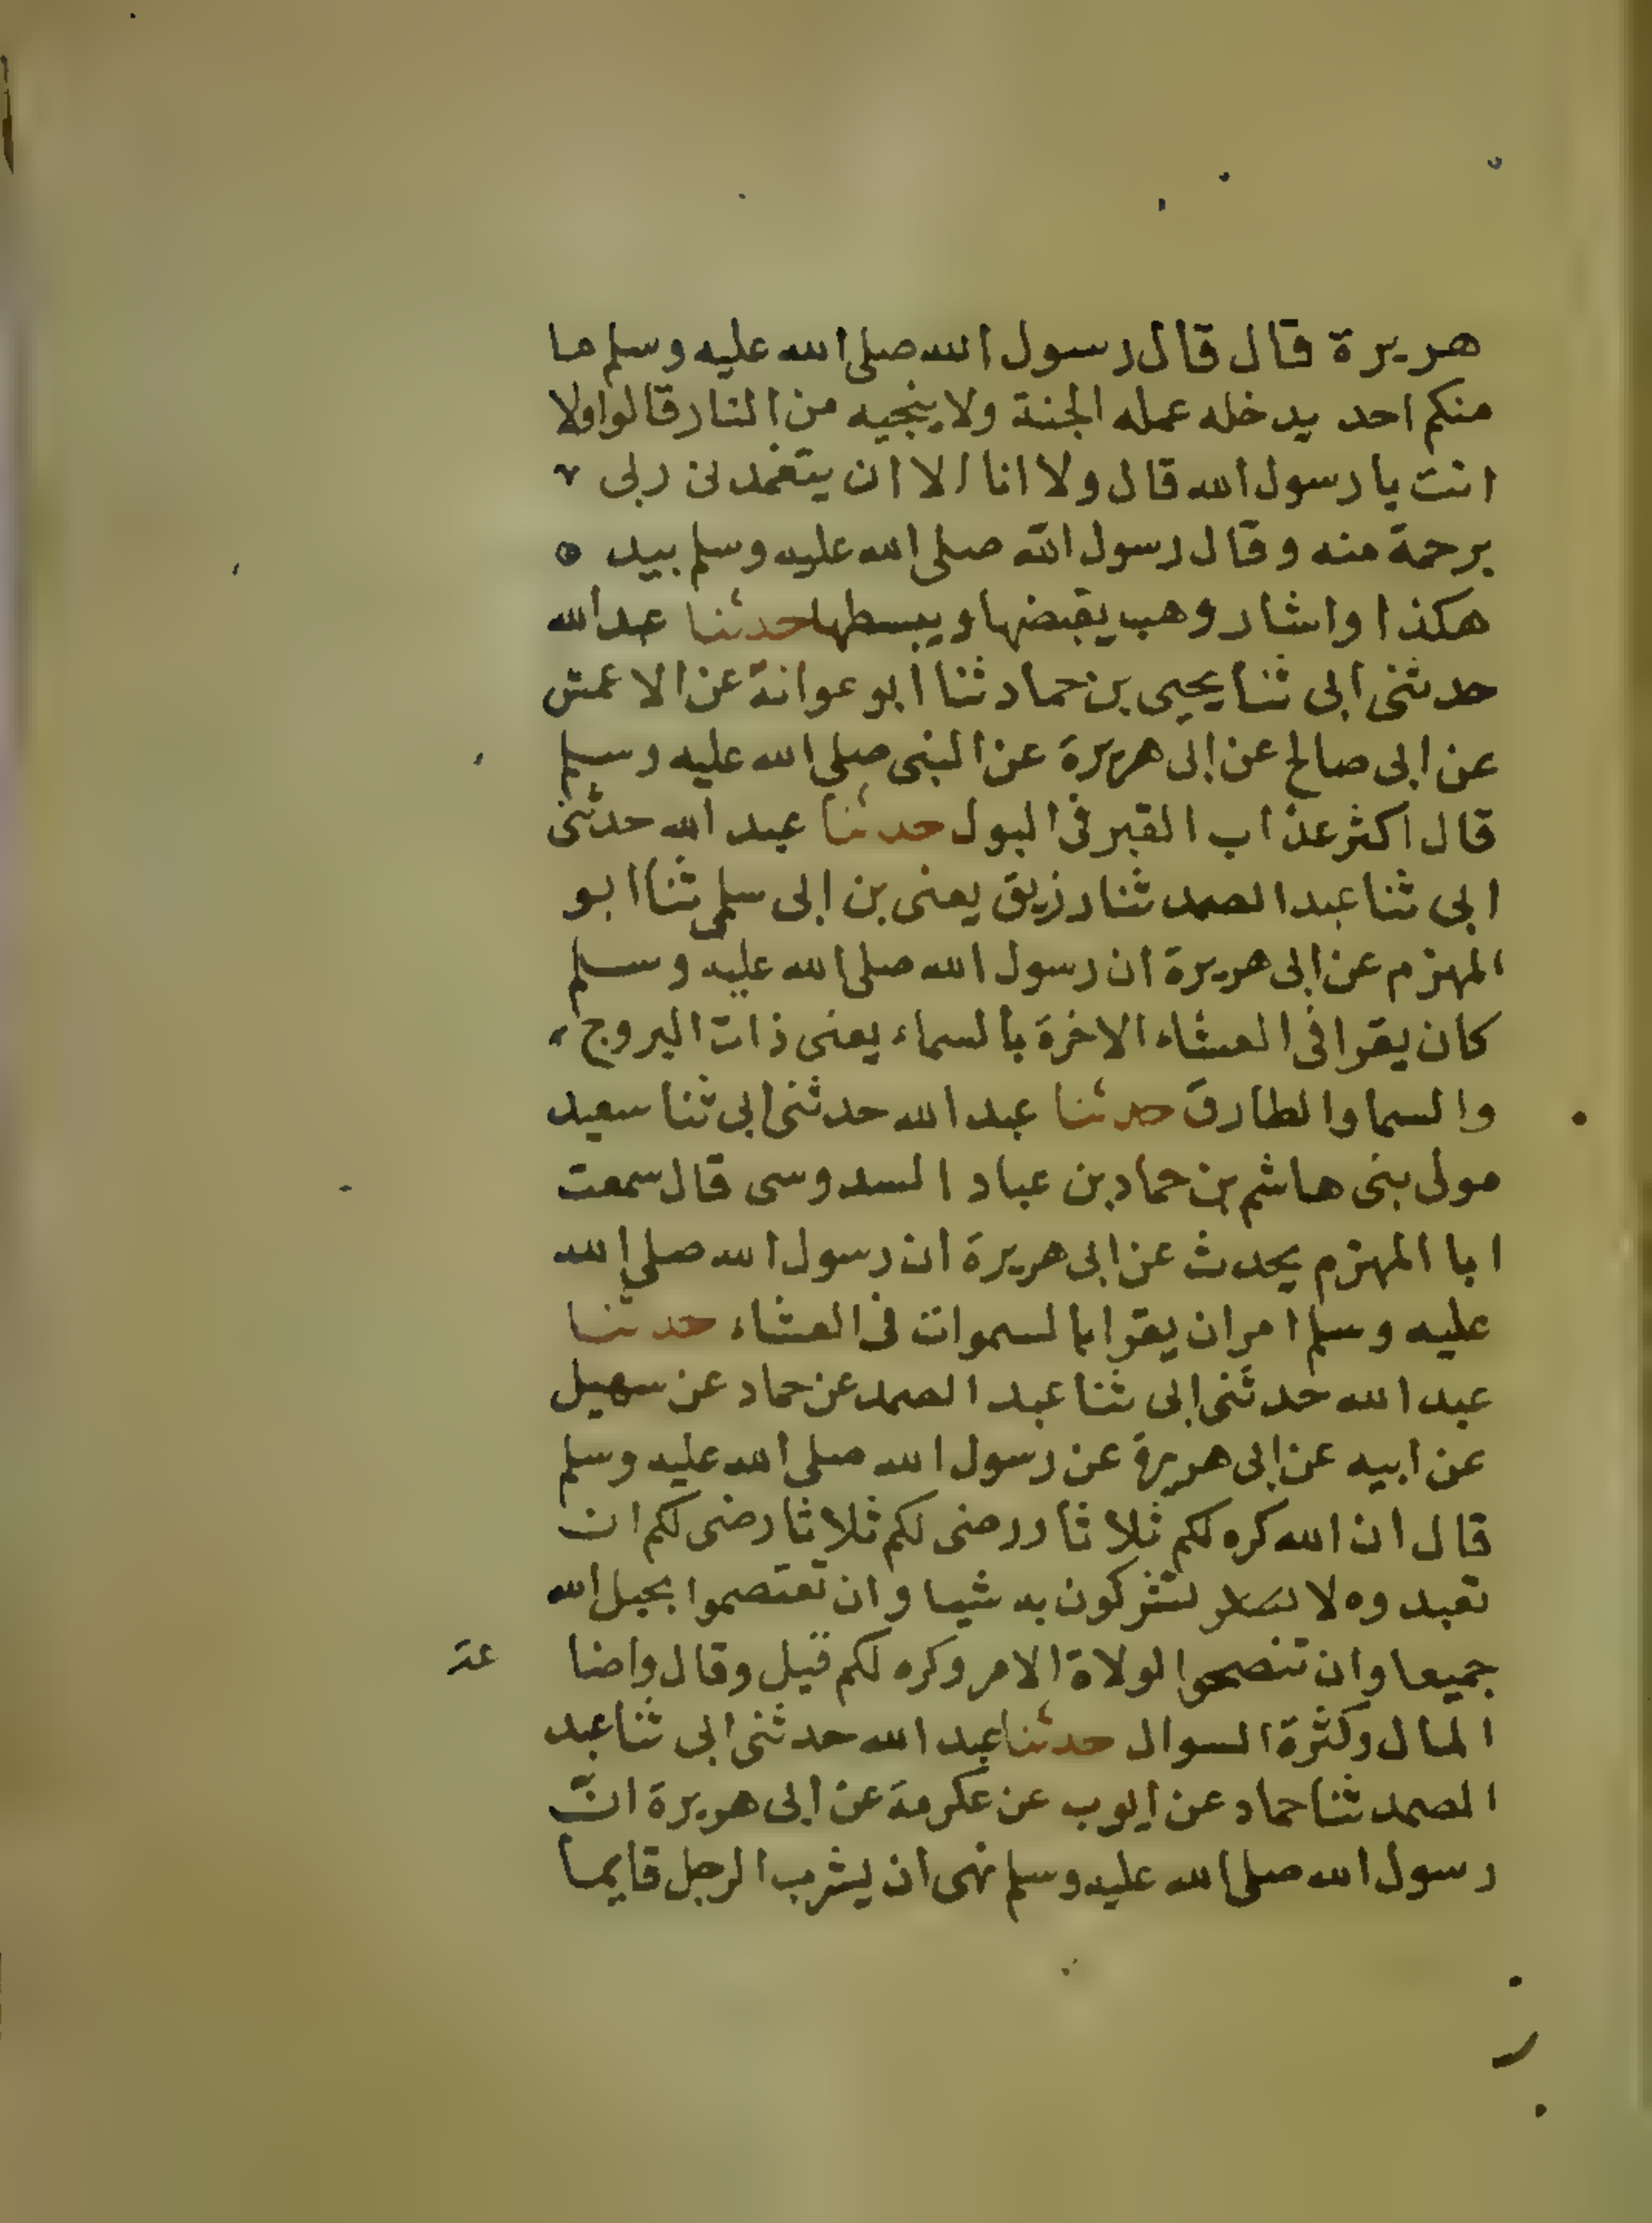 هريرة قال قال رسول الله صلى الله عليه وسلم ما
منكم احد يدخله عمله الجنة ولا ينجيه من النار قالوا ولا
انت يا رسول الله قال ولا انا الا ان يتغمدنى ربى
برحمة منه وقال رسول الله صلى الله عليه وسلم بيده
هكذا واشار وهب يقبضها ويبسطها حدثنا عبد الله
حدثنى ابى ثنا يحيى بن حماد ثنا ابو عوانة عن الاعمش
عن ابى صالح عن ابى هريرة عن النبى صلى الله عليه وسلم
قال اكثر عذاب القبر فى البول حدثنا عبد الله حدثنى
ابى ثنا عبد الصمد ثنا رزيق يعنى بن ابى سلمى ثنا ابو
المهزم عن ابى هريرة ان رسول الله صلى الله عليه وسلم
كان يقرا فى العشاء الاخرة بالسماء يعنى ذات البروج
والسما والطارق حدثنا عبد الله حدثنى ابى ثنا سعيد
مولى بنى هاشم بن حماد بن عباد السدوسى قال سمعت
ابا المهزم يحدث عن ابى هريرة ان رسول الله صلى الله
عليه وسلم امر ان يقرا بالسموات فى العشاء حدثنا
عبد الله حدثنى ابى ثنا عبد الصمد عن حماد عن سهيل
عن ابيه عن ابى هريرة عن رسول الله صلى الله عليه وسلم
قال ان الله كره لكم ثلاثا ورضى لكم ثلاثا رضى لكم ان
تعبدوه ولا تشركون به شيا وان تعتصموا بحبل الله
جميعا وان تنصحوا لولاة الامر وكره لكم قيل وقال واضا
عة
المال وكثرة السوال حدثنا عبد الله حدثنى ابى ثنا عبد
الصمد ثنا حماد عن ايوب عن عكرمة عن ابى هريرة ان
رسول الله صلى الله عليه وسلم نهى ان يشرب الرجل قايما